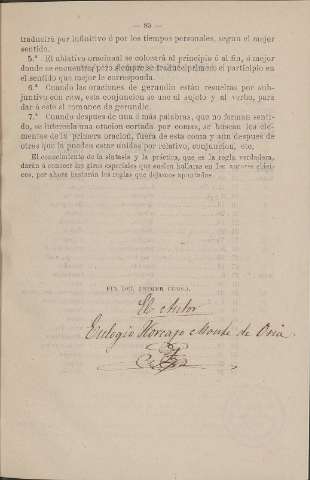 — 85 —
traducirá por infinitivo ó por los tiempos personales, segun el mejor
sentido.
5.ª El ablativo oracional se colocará al principio ó al fin, ó mejor
donde se encuentre, pero siempre se traduce primero el participio en
el sentido que mejor le corresponda.
6.ª Cuando las oraciones de gerundio están resueltas por sub-
juntivo con cum, esta conjuncion se une al sujeto y al verbo, para
dar á este el romance de gerundio.
7.ª Cuando despues de una ó más palabras, que no forman senti-
do, se intercala una oracion cortada por comas, se buscan los ele-
mentos de la primera oracion, fuera de esta coma y aun despues de
otras que la pueden estar unidas por relativo, conjuncion, etc.
El conocimiento de la sintaxis y la práctica, que es la regla verdadera,
darán á conocer los giros especiales que suelen hallarse en los autores clási-
cos, por ahora bastarán las reglas que dejamos apuntadas.
FIN DEL PRIMER CURSO.
El Autor
Eulogio Horcajo Monte de Oria